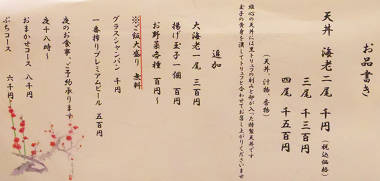 お品書き
天丼 海老二尾 千円 (税込価格)
三尾 千三百円
四尾 千五百円
(天丼、汁椀、香物)
追加
大海老一尾 三百円
揚げ玉子一個 百円
お野菜各種 百円〜
※ご飯大盛り 無料
グラスシャンパン 千円
一番搾りプレミアムビール 五百円
夜のお食事、ご予約承ります
夜十八時〜
おまかせコース 八千円
ぷちコース 六千円